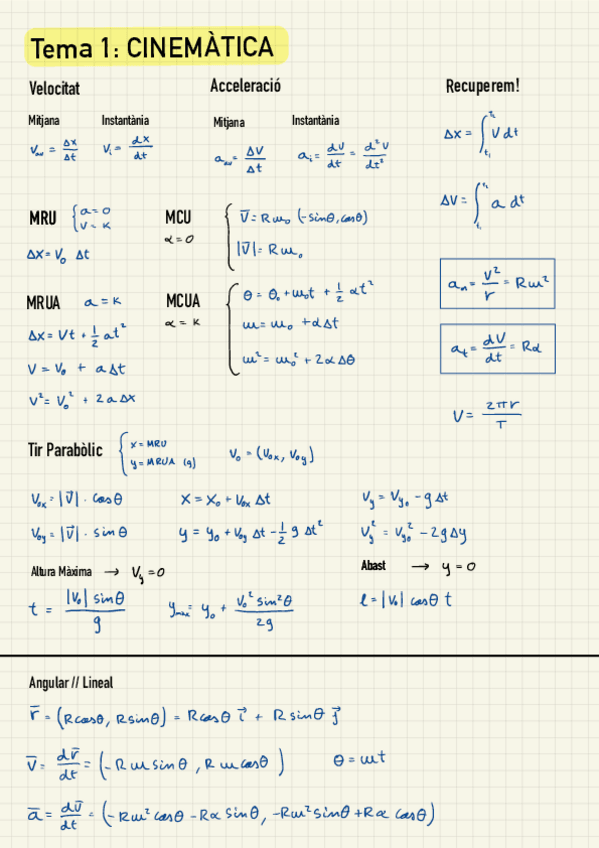 Tema 1: CINEMÀTICA
Velocitat
Mitjana Instantània
Vav = Δx/Δt Vi = dx/dt
Acceleració
Mitjana Instantània
aav = ΔV/Δt ai = dV/dt = d²V/dt²
Recuperem!
Δx = ∫ V dt
ΔV = ∫ a dt
MRU { a = 0
V = K
Δx = V₀ Δt
MCU
α = 0
V̄ = Rω₀ (-sinθ, cosθ)
|V̄| = Rω₀
MRUA a = K
Δx = Vt + 1/2 at²
V = V₀ + aΔt
V² = V₀² + 2aΔx
MCUA
α = K
θ = θ₀ + ω₀t + 1/2 αt²
ω = ω₀ + αΔt
ω² = ω₀² + 2αΔθ
an = V²/r = Rω²
at = dV/dt = Rα
V = 2πr/T
Tir Parabòlic { x = MRU
y = MRUA (g)
V₀ = (V₀x, V₀y)
V₀x = |V̄| · cosθ x = x₀ + V₀x Δt Vy = Vy₀ - gΔt
V₀y = |V̄| · sinθ y = y₀ + V₀y Δt - 1/2 g Δt² Vy² = Vy₀² - 2gΔy
Altura Màxima → Vy = 0 Abast → y = 0
t = |V₀| sinθ/g ymax = y₀ + V₀² sin²θ/2g l = |V₀| cosθ t
Angular // Lineal
r̄ = (Rcosθ, Rsinθ) = Rcosθ i⃗ + R sinθ j⃗
V̄ = dr̄/dt = (-Rω sinθ, Rω cosθ) θ = ωt
ā = dv̄/dt = (-Rω² cosθ - Rα sinθ, -Rω² sinθ + Rα cosθ)